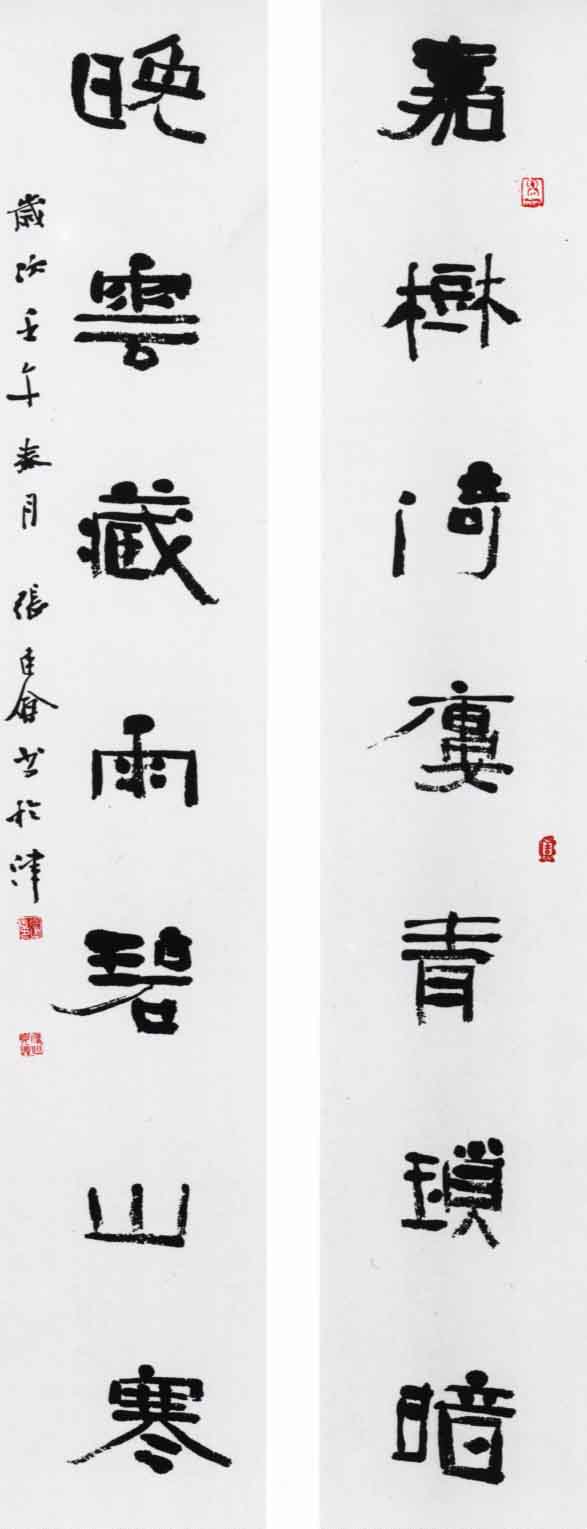 嘉樹倚廔青瑣暗
晚雲藏雨碧山寒
歲次壬午春月 張建會书於津